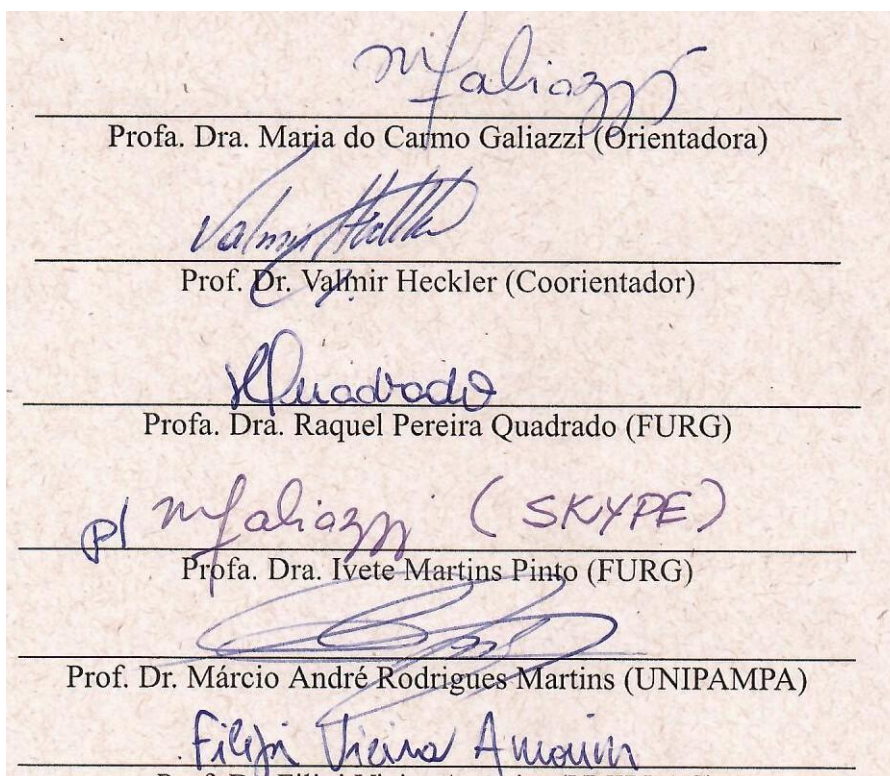 mfaliazzi
Profa. Dra. Maria do Carmo Galiazzi (Orientadora)
Valmir Heckler
Prof. Dr. Valmir Heckler (Coorientador)
RQuadrado
Profa. Dra. Raquel Pereira Quadrado (FURG)
p/ mfaliazzi (SKYPE)
Profa. Dra. Ivete Martins Pinto (FURG)
Prof. Dr. Márcio André Rodrigues Martins (UNIPAMPA)
Filipi Vieira Amorim